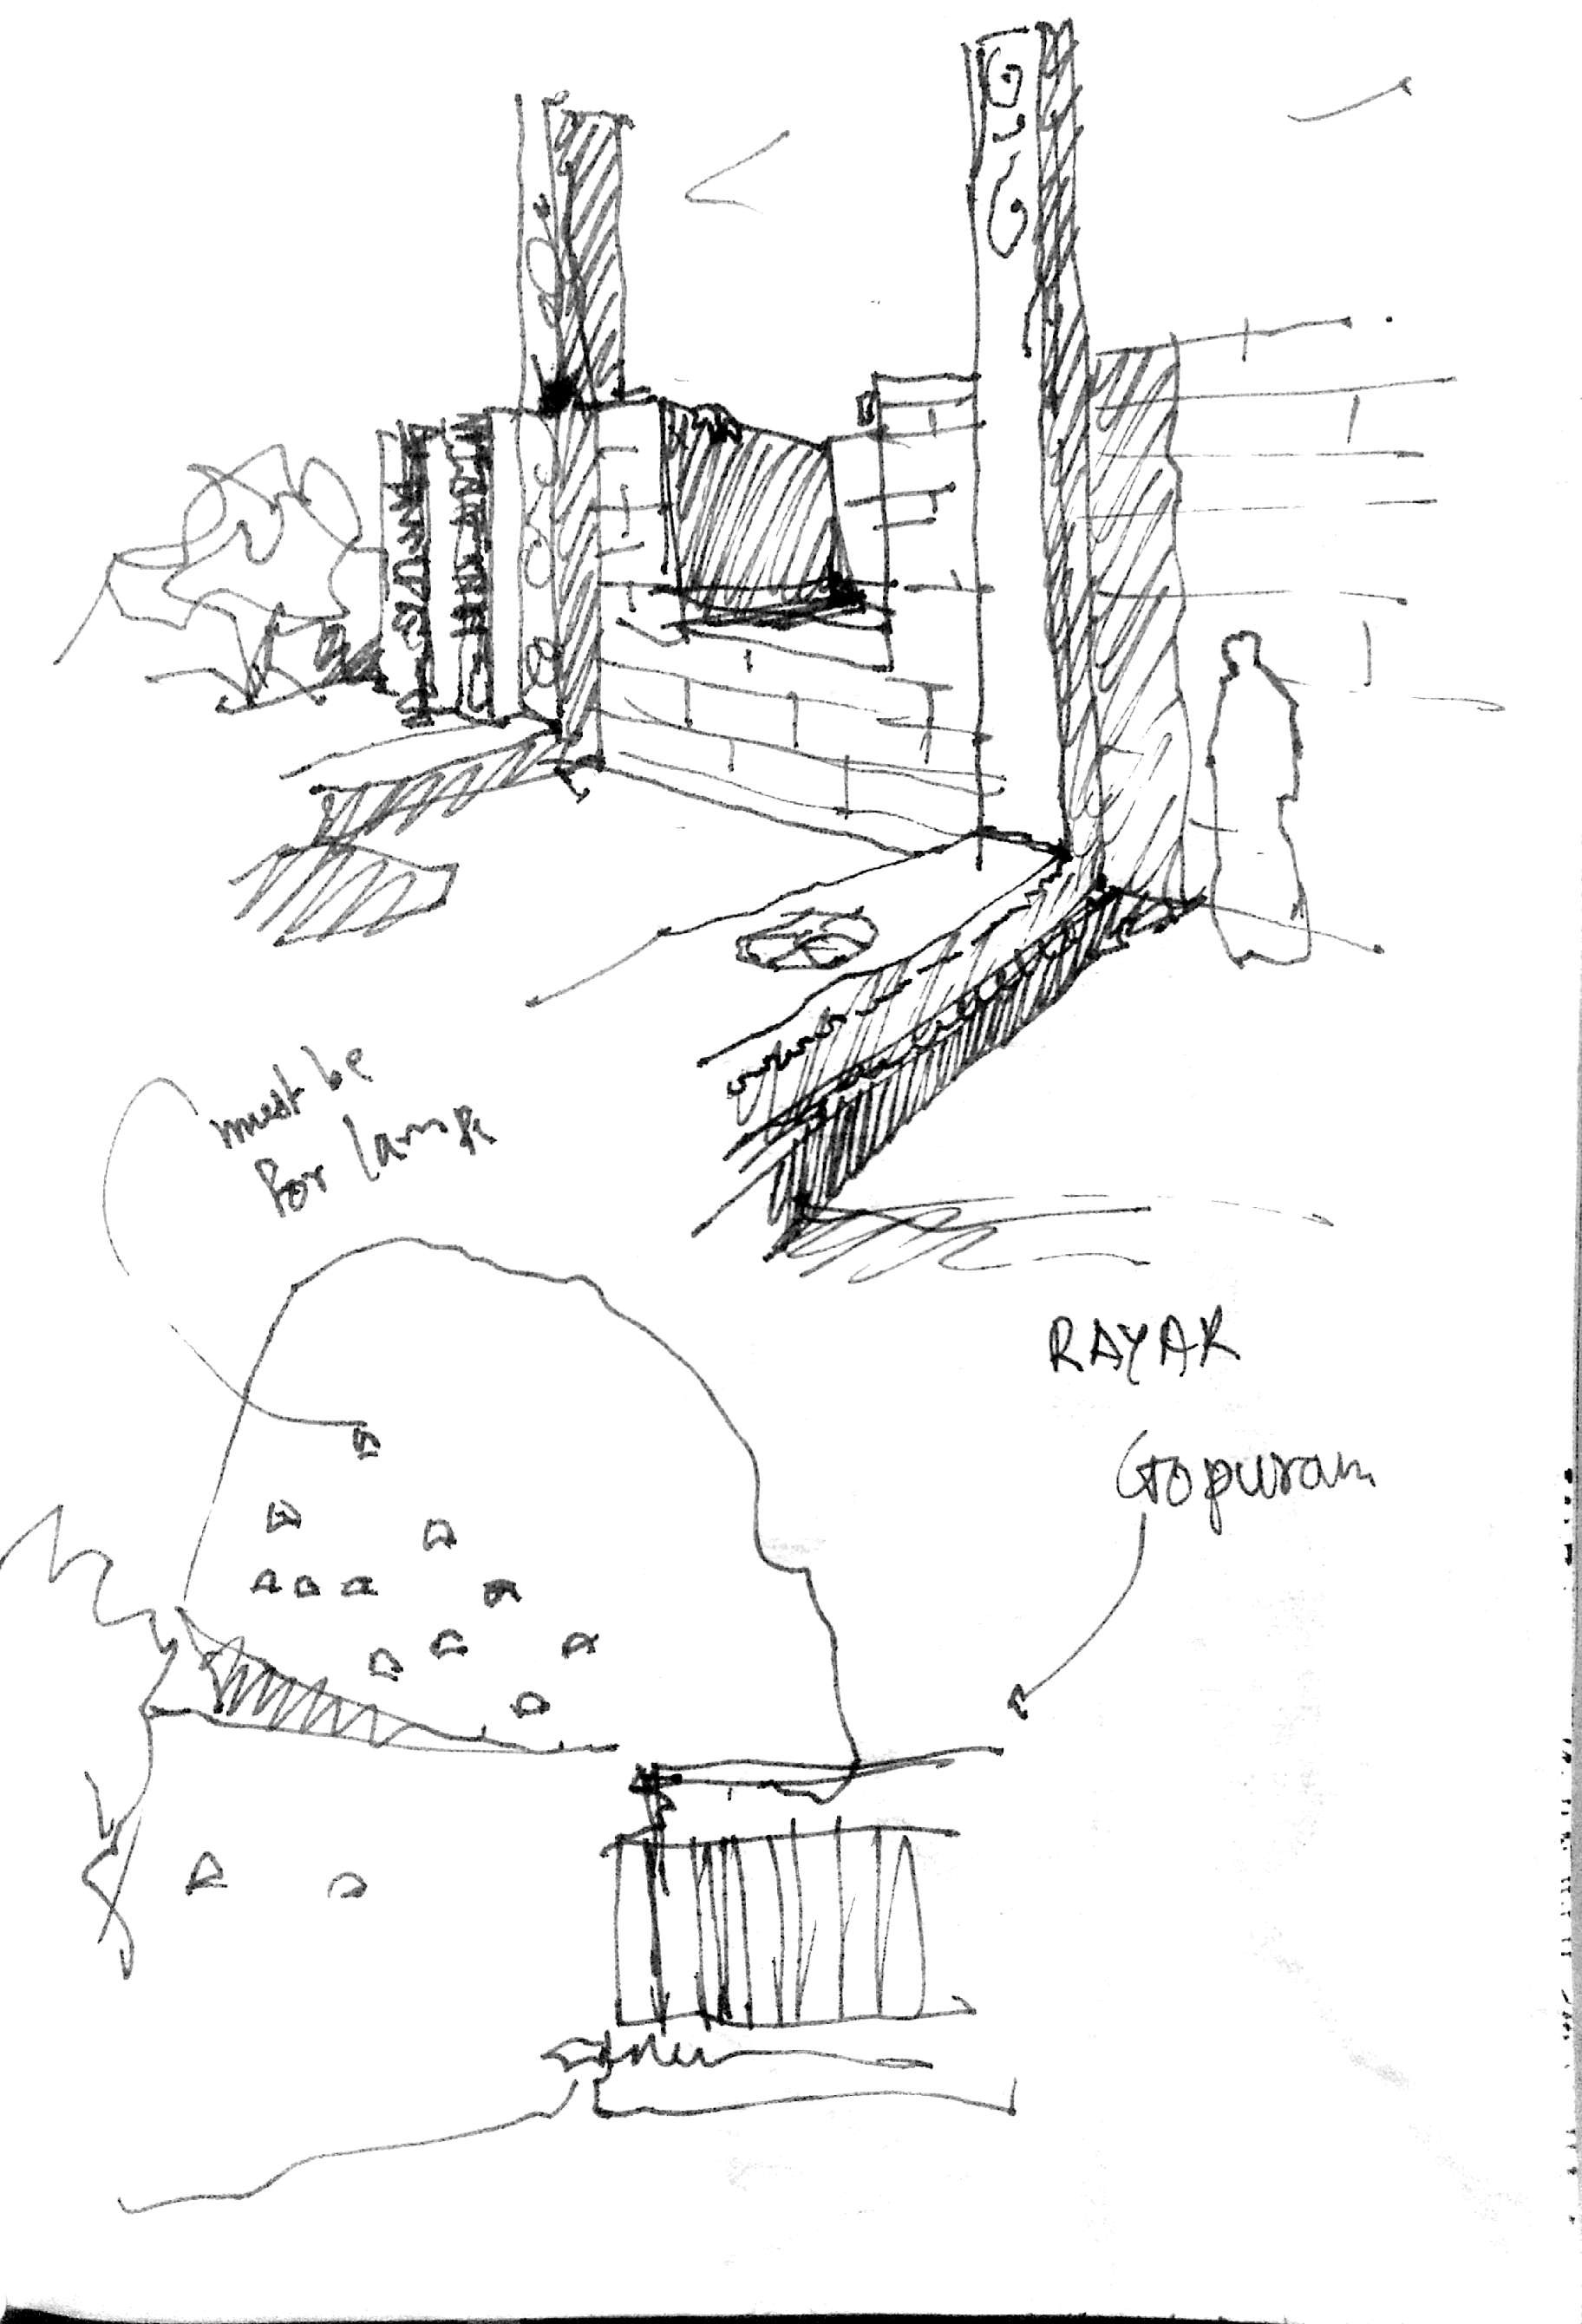 must be
for lamp
RAYAR
Gopuram